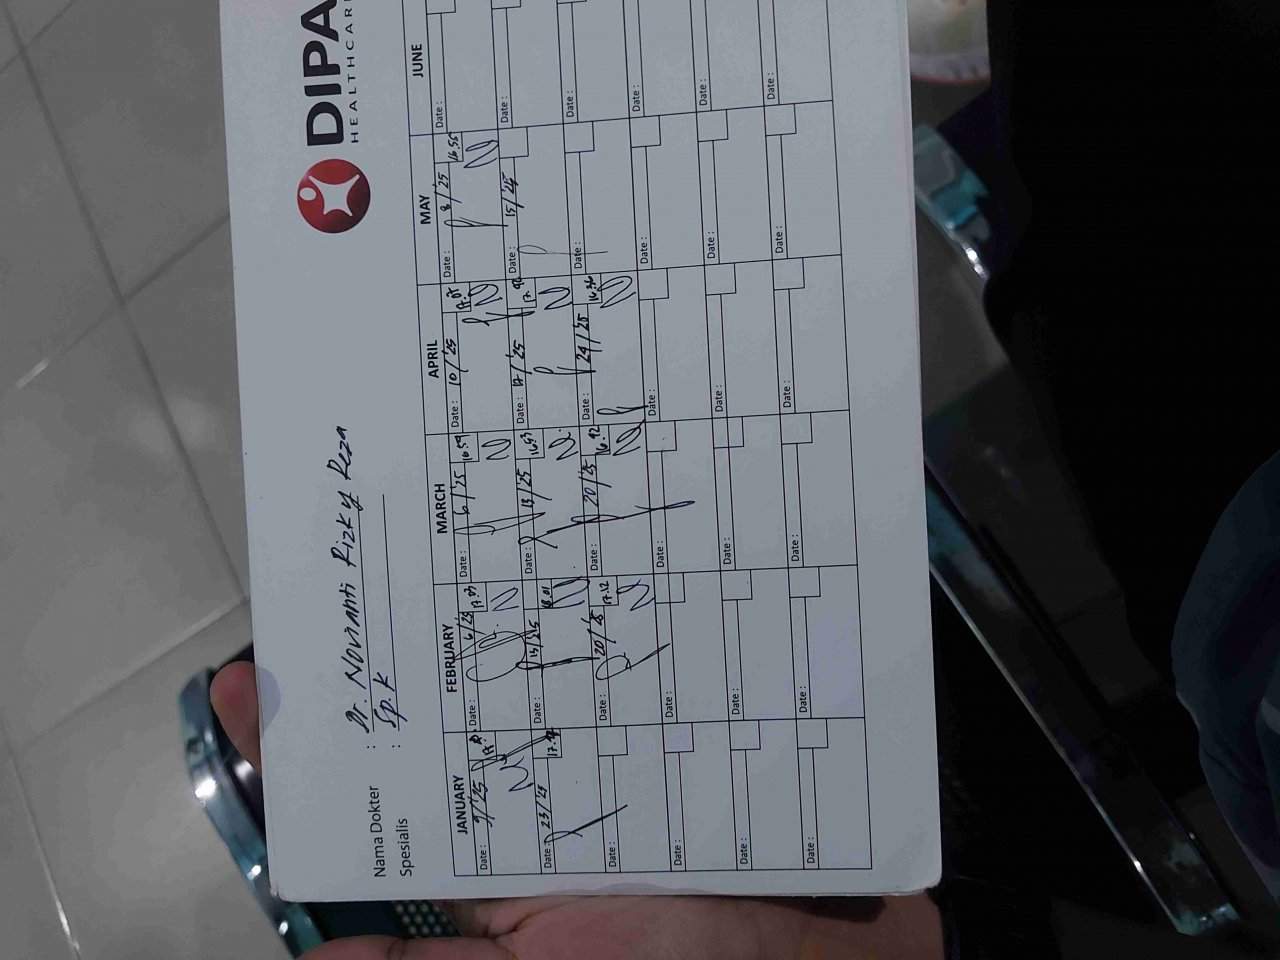 DIPA
HEALTHCAR
Nama Dokter : Dr. Novianti Rizky Reza
Spesialis : Sp.K
JANUARY FEBRUARY MARCH APRIL MAY JUNE
Date : 9/'25 Date : 6/25 17.37 Date : 6/'25 16.59 Date : 10/'25 17.05 Date : 8/'25 16.55 Date :
Date : 23/'25 Date : 13/25 18.01 Date : 13/'25 16.53 Date : 17/'25 Date : 15/'25 Date :
Date : Date : 20/'25 17.12 Date : 20/'25 16.42 Date : 24/'25 16.36 Date : Date :
Date : Date : Date : Date : Date : Date :
Date : Date : Date : Date : Date : Date :
Date : Date : Date : Date : Date : Date :